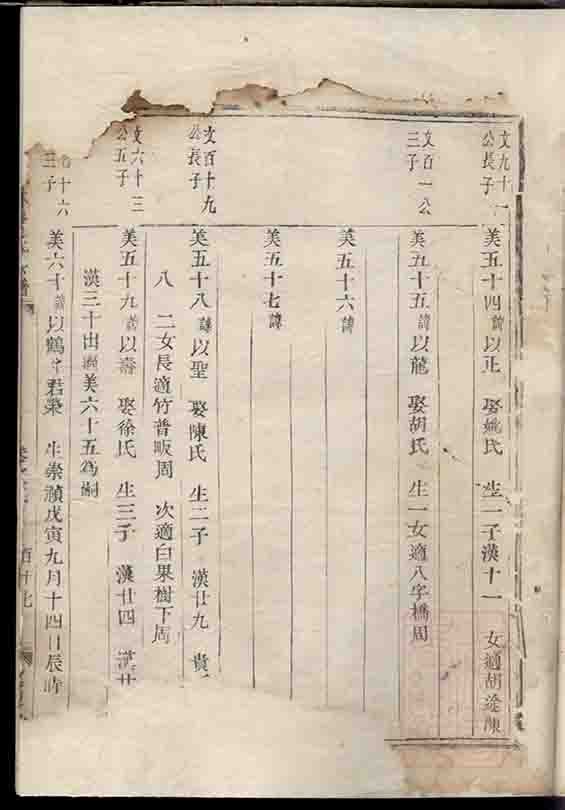 文九十一
公長子
美五十四 諱以正 娶姚氏 生一子漢十一 女適胡陳
文百一公
三子
美五十五 諱以龍 娶胡氏 生一女適八字橋周
美五十六 諱
美五十七 諱
文百十九
公長子
美五十八 諱以聖 娶陳氏 生二子 漢廿九 貴
八 二女長適竹普畈周 次適白果樹下周
文六十三
公五子
美五十九 諱以壽 娶徐氏 生三子 漢廿四 漢廿
漢三十出繼美六十五為嗣
十六
三子
美六十 諱以鶴 字君榮 生崇禎戊寅九月十四日辰時